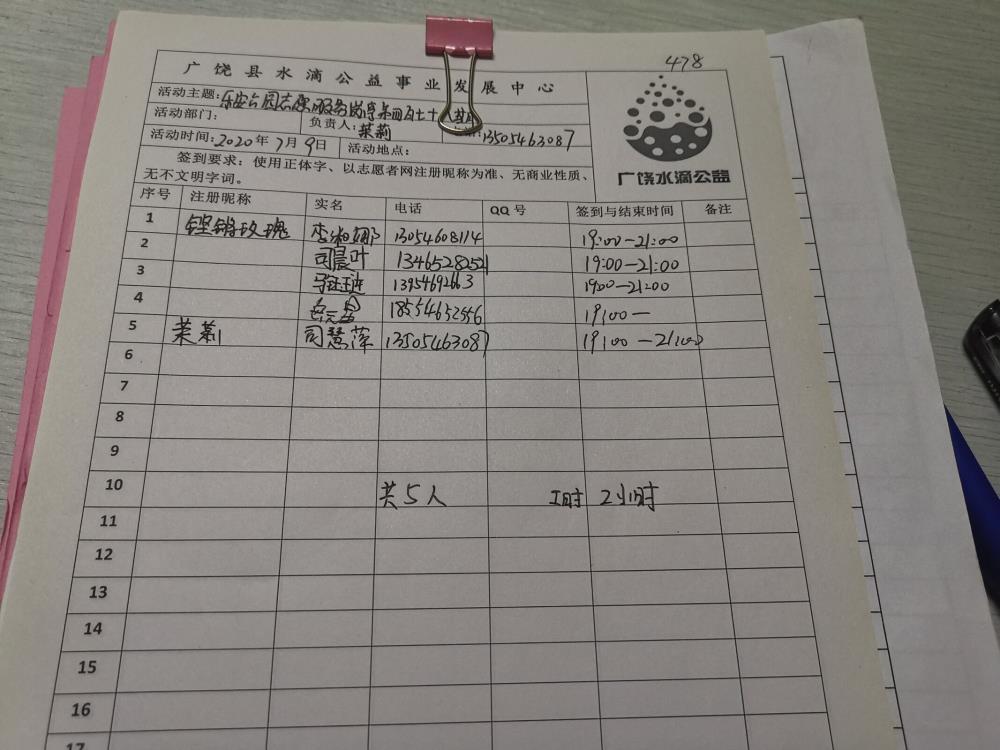 478
广饶县水滴公益事业发展中心
活动主题:乐安公园志愿服务岗亭第四百七十八期
活动部门: 负责人:茉莉 13505463087
活动时间:2020年7月9日 活动地点:
签到要求:使用正体字、以志愿者网注册昵称为准、无商业性质、
无不文明字词。
广饶水滴公益
序号 注册昵称 实名 电话 QQ号 签到与结束时间 备注
1 铿锵玫瑰 李湘娜 13054608114 19:00-21:00
2 司晨叶 13465282521 19:00-21:00
3 13954692663 19:00-21:00
4 18554652556 19:00-
5 茉莉 司慧萍 13505463087 19:00-21:00
6
7
8
9
10 共5人 工时 2小时
11
12
13
14
15
16
17